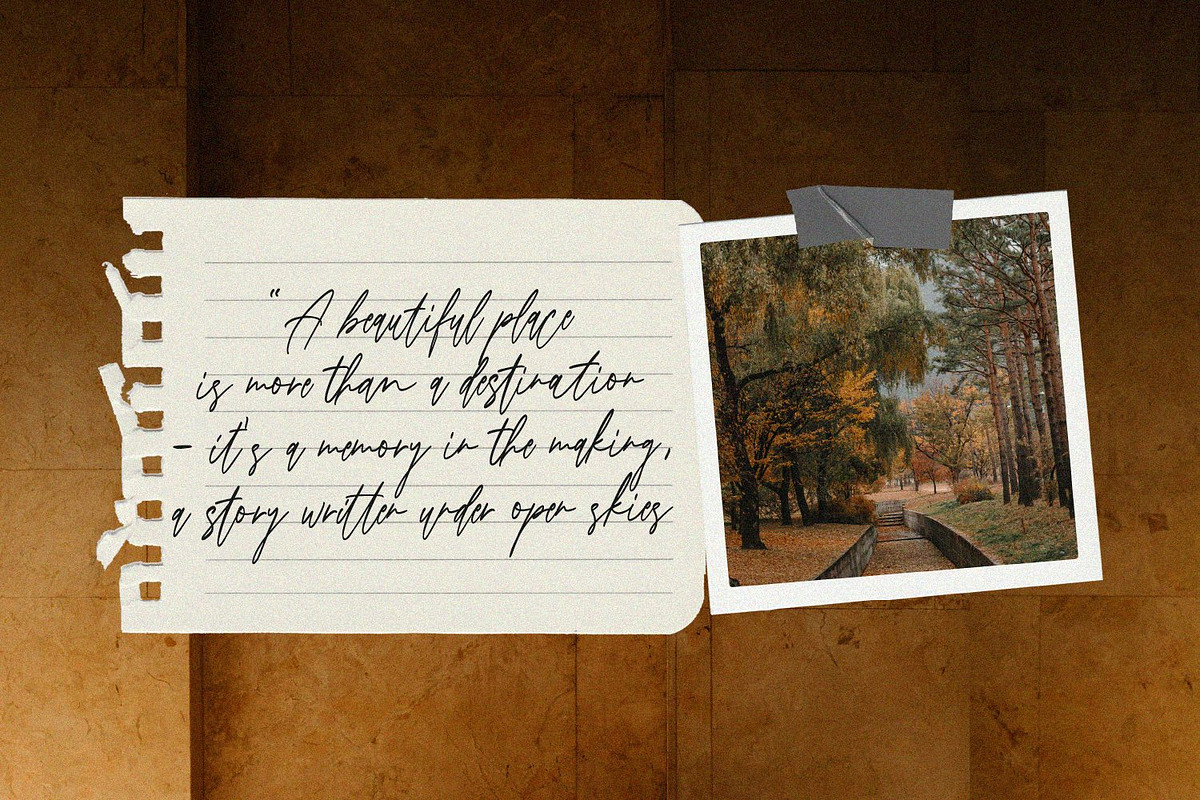 “A beautiful place
is more than a destination
- it's a memory in the making,
a story written under open skies